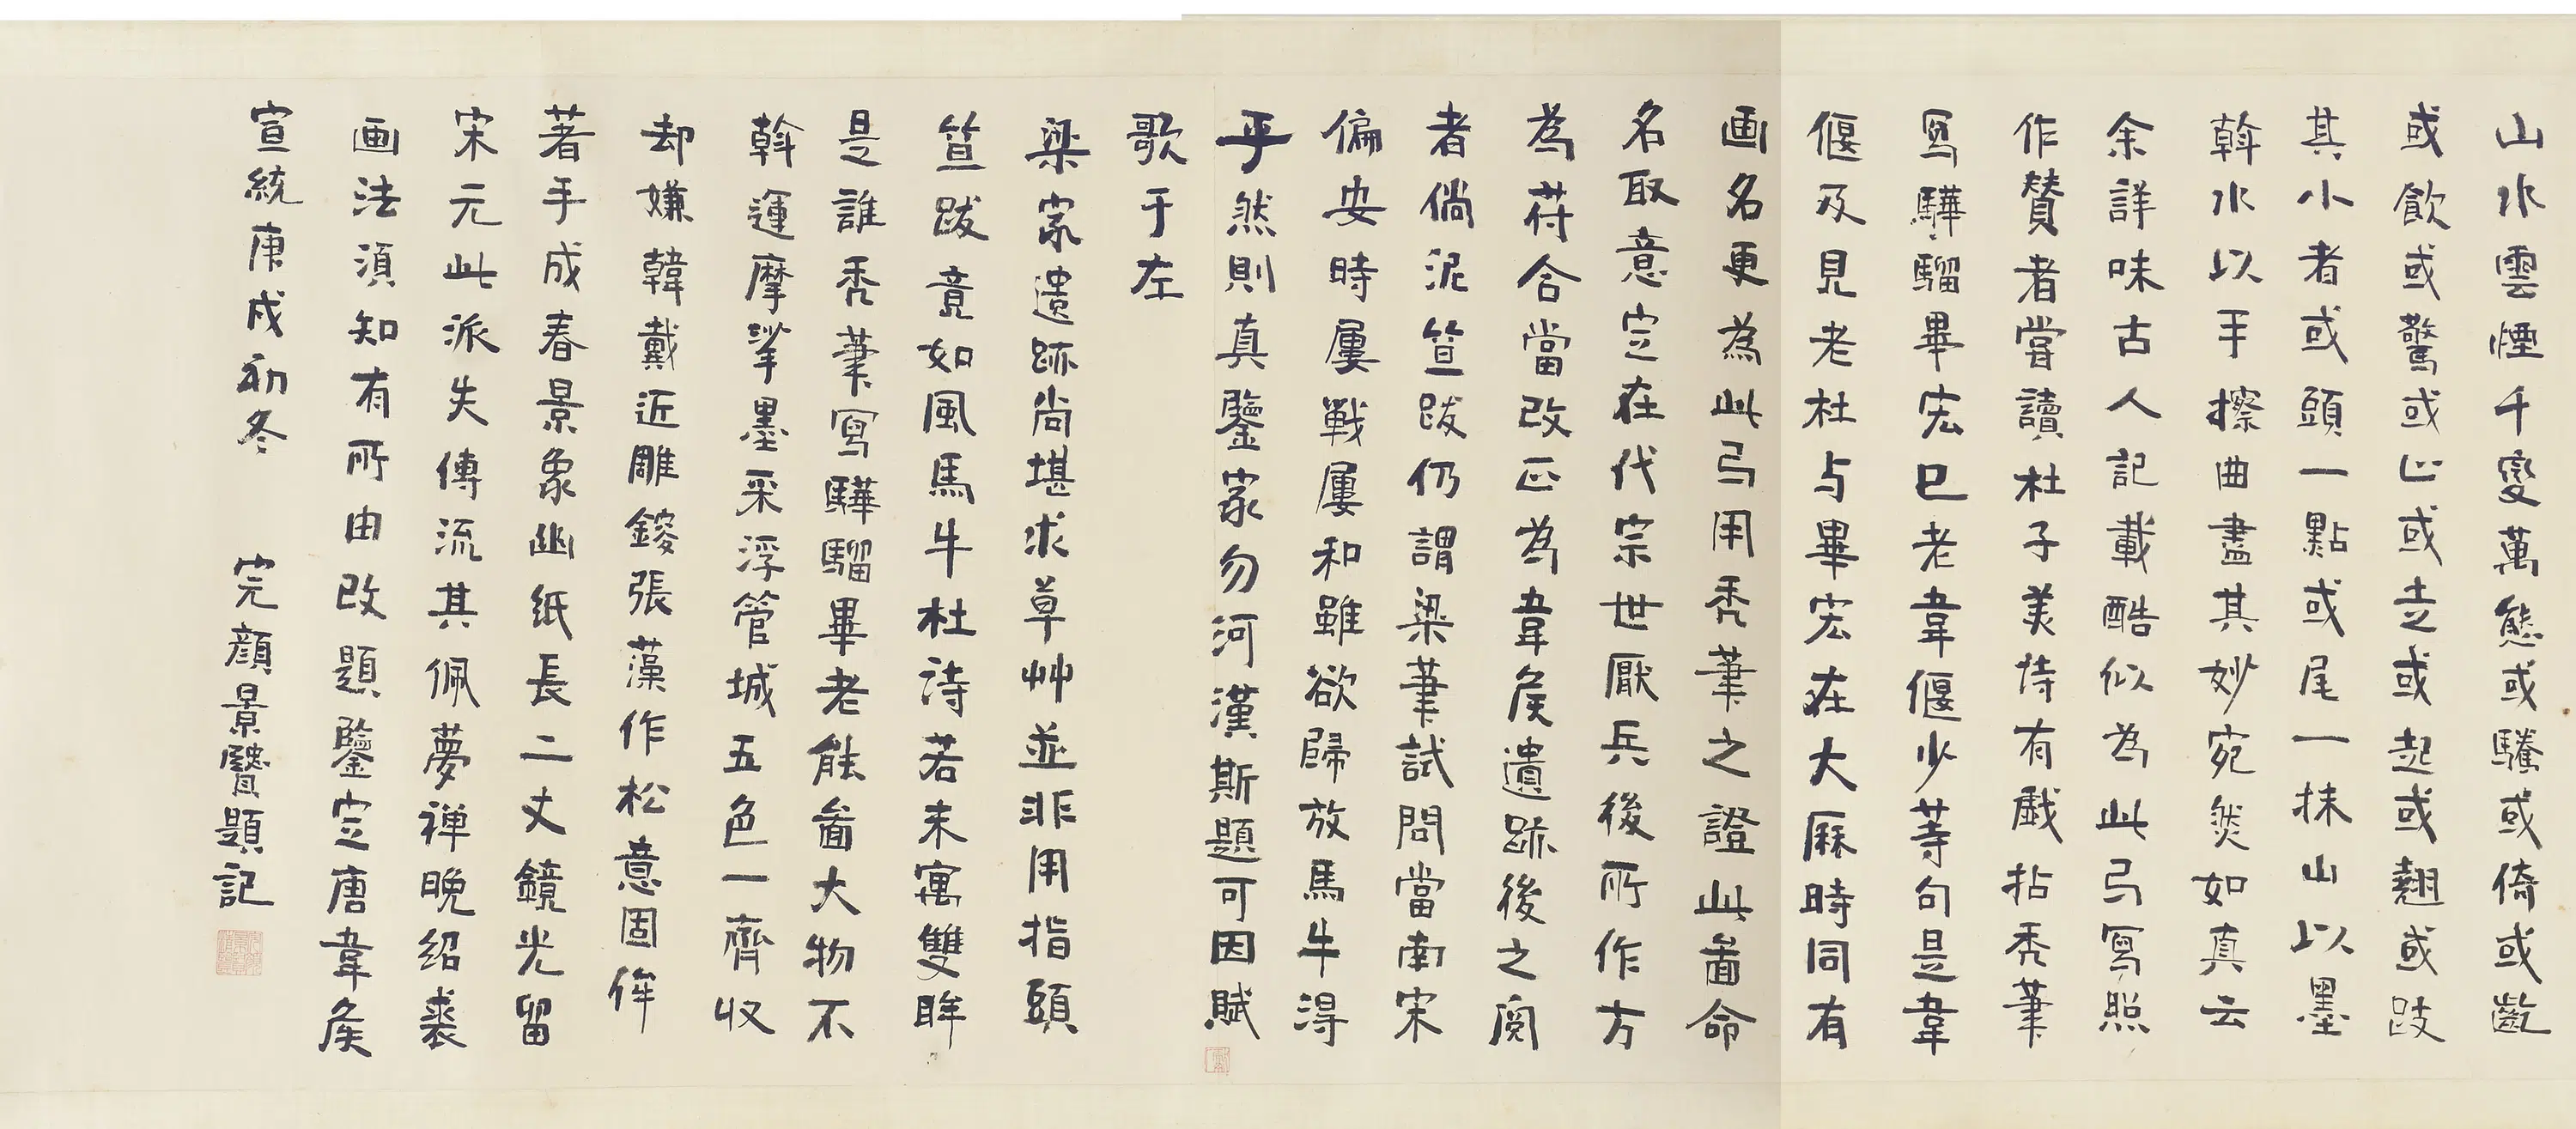 山水雲煙千變萬態或騰或倚或齕
或飲或驚或止或走或起或翹或跂
其小者或頭一點或尾一抹山以墨
斡水以手擦曲盡其妙宛然如真云
余詳味古人記載酷似為此弓寫照
作贊者嘗讀杜子美詩有戲拈禿筆
寫驊騮畢宏已老韋偃少等句是韋
偃及見老杜与畢宏在大厤時同有
画名更為此弓用禿筆之證此啚命
名取意定在代宗世厭兵後所作方
為苻合當改正為韋矦遺跡後之閱
者倘泥笪跋仍謂梁筆試問當南宋
偏安時屢戰屢和雖欲歸放馬牛得
乎然則真鑒家勿河漢斯題可因賦
歌于左
梁家遺跡尚堪求草艸並非用指頭
笪跋竟如風馬牛杜詩若未寓雙眸
是誰禿筆寫驊騮畢老能啚大物不
斡運摩挲墨采浮管城五色一齊收
却嫌韓戴近雕鎪張藻作松意固侔
著手成春景象幽紙長二丈鏡光留
宋元此派失傳流其佩夢禅晚紹裘
画法須知有所由改題鑒定唐韋矦
宣統庚戌初冬 完顏景賢題記